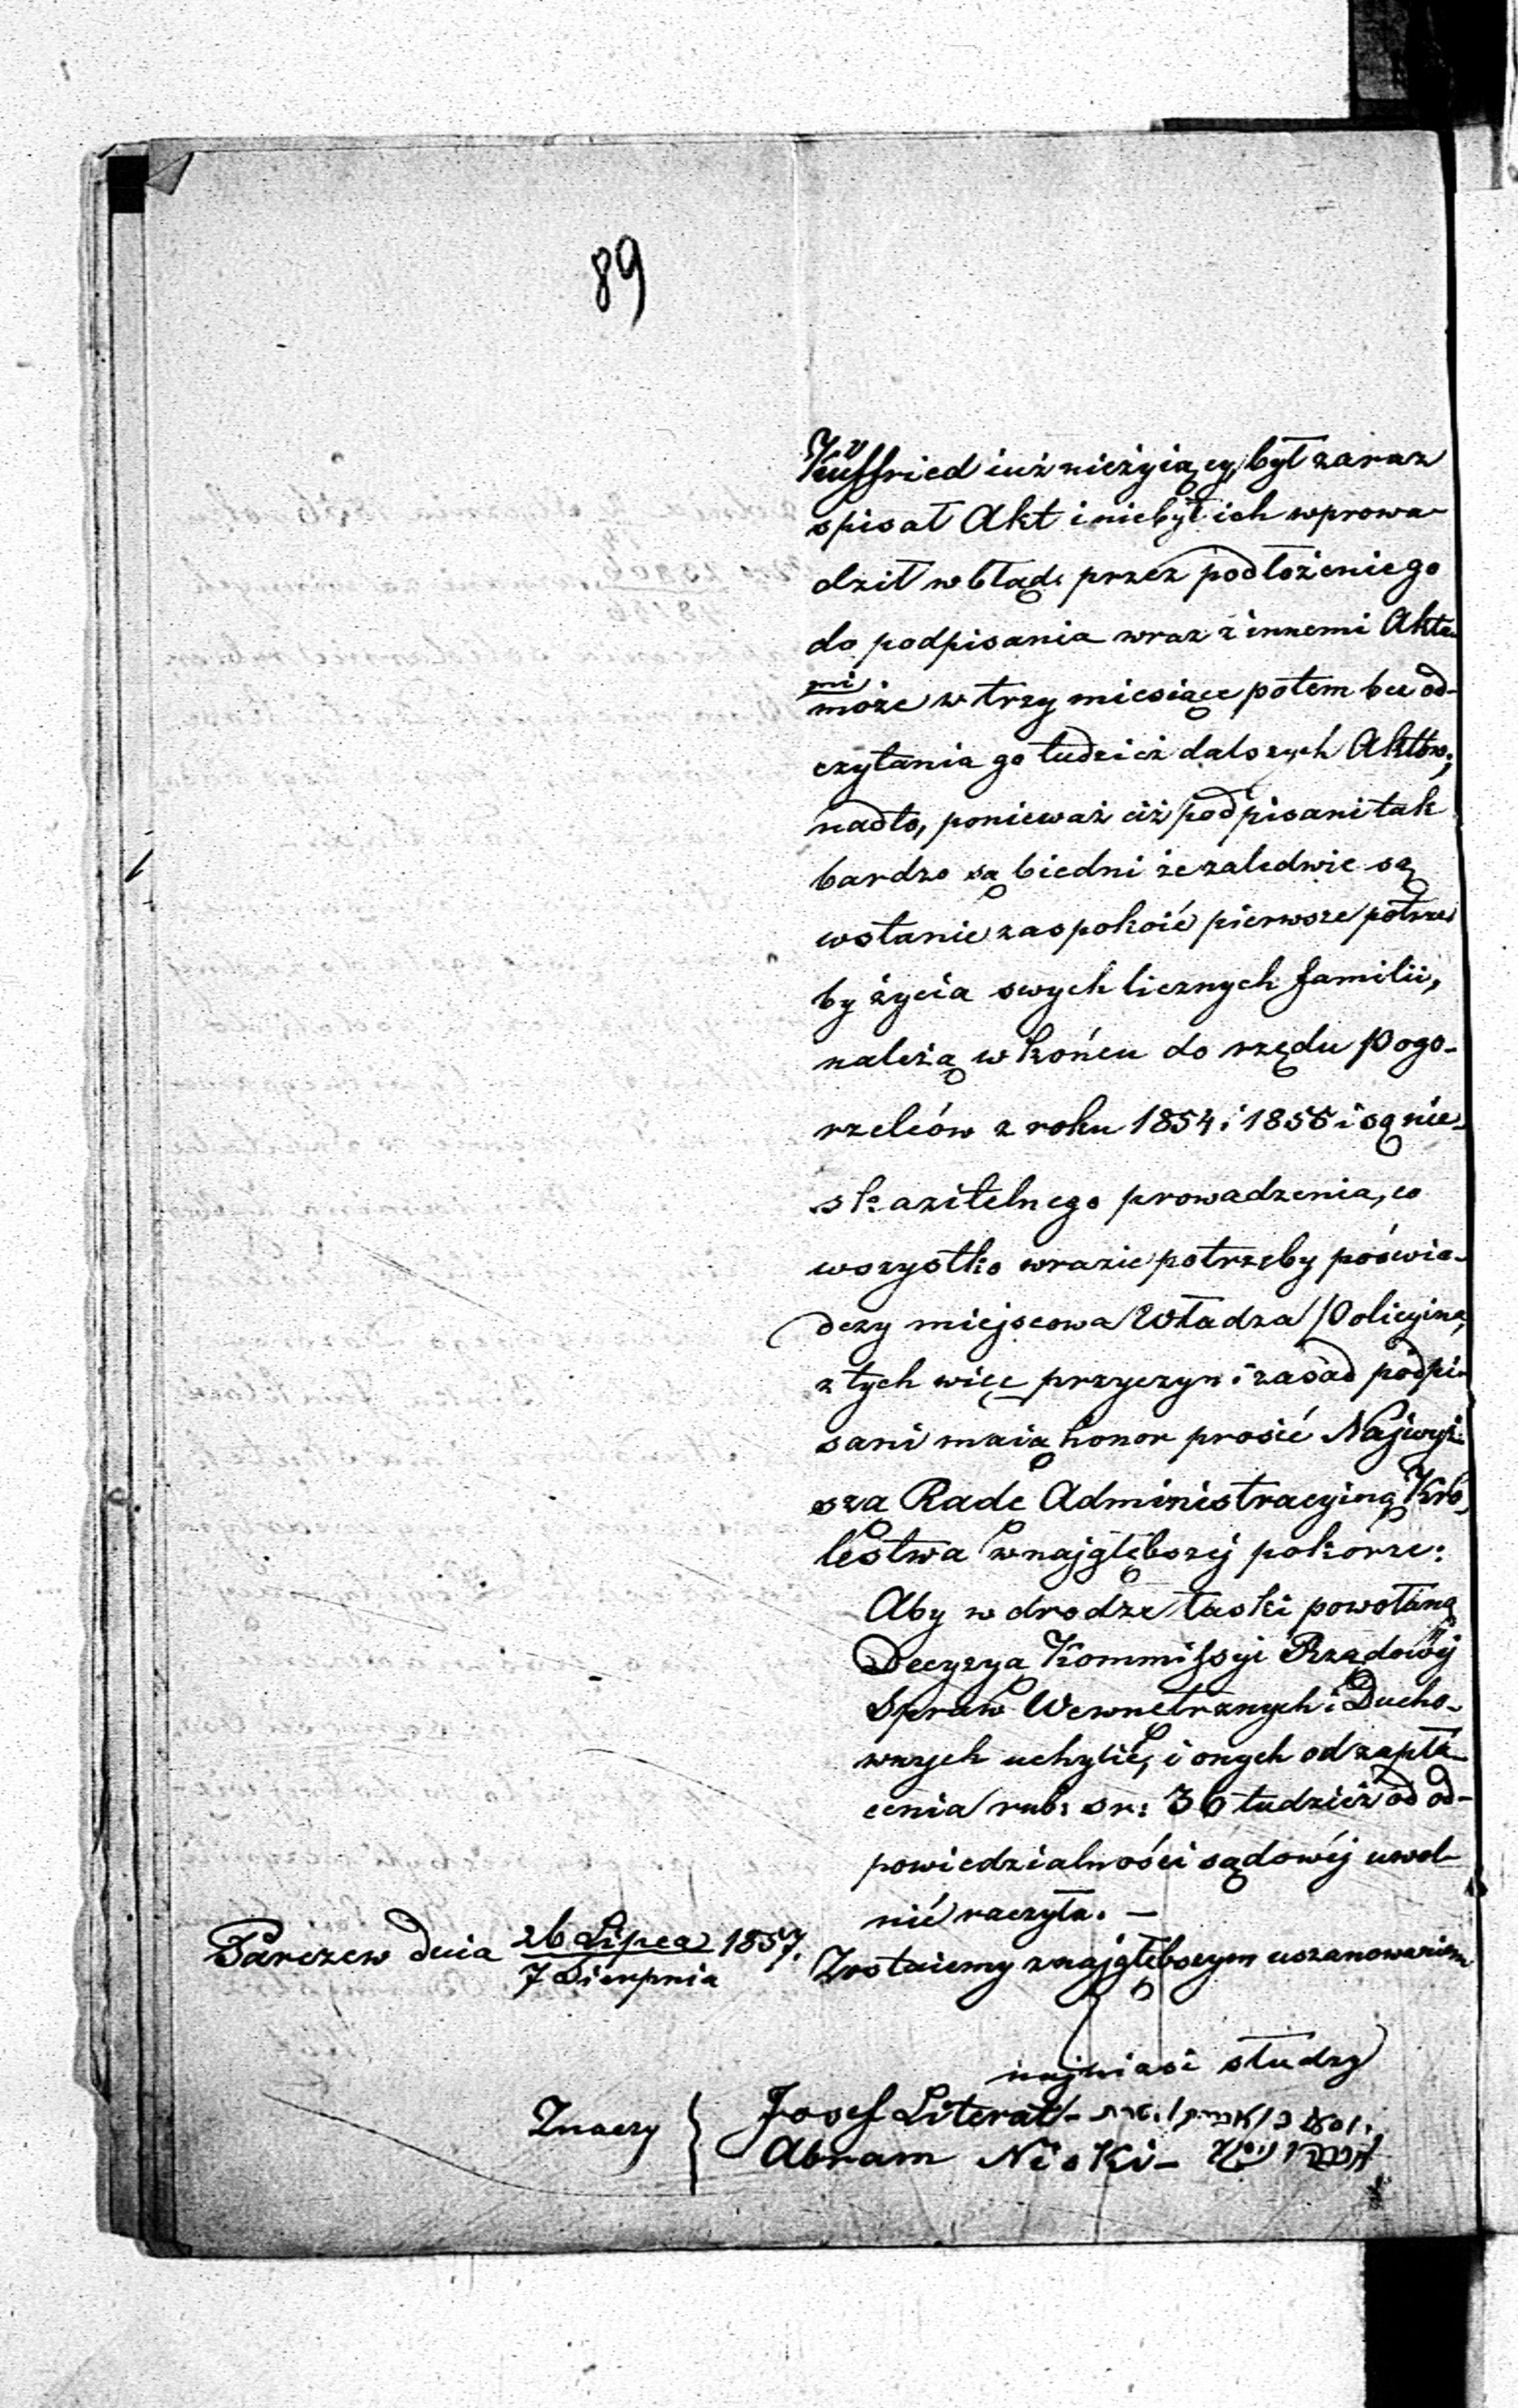 89
Küffried iuż nieżyiący, był zaraz
spisał Akt i niebył ich wprowa-
dził w błąd, przez podłożenie go
do podpisania wraz z innemi Akta-
mi może w trzy miesiące potem bez od-
czytania go tudzież dalszych Aktów;
nadto, ponieważ ciż podpisani tak
bardzo są biedni że zaledwie są
wstanie zaspokoić pierwsze potrze-
by życia swych licznych familii,
należą w końcu do rzędu Pogo-
rzelców z roku 1854 i 1855 i są nie-
skazitelnego prowadzenia, co
wszystko wrazie potrzeby poświa-
dczy miejscowa Władza Policyina,
z tych więc przyczyn i zasad podpi-
sani maią honor prosić Najwyż-
szą Radę Administracyiną Kró-
lestwa w najgłębszej pokorze:
Aby w drodze łaski powołaną
Decyzyą Kommissyi Rządowéj
Spraw Wewnętrznych i Ducho-
wnych uchylić, i onych od zapła-
cenia rub: sr: 36 tudzież od od-
powiedzialności sądowéj uwol-
nić raczyła. —
Parczew dnia 26 Lipca / 7 Sierpnia 1857.
Zostaiemy z najgłębszym uszanowaniem
najniżsi słudzy
Znaczy { Josef Literat -
Abram Niski -